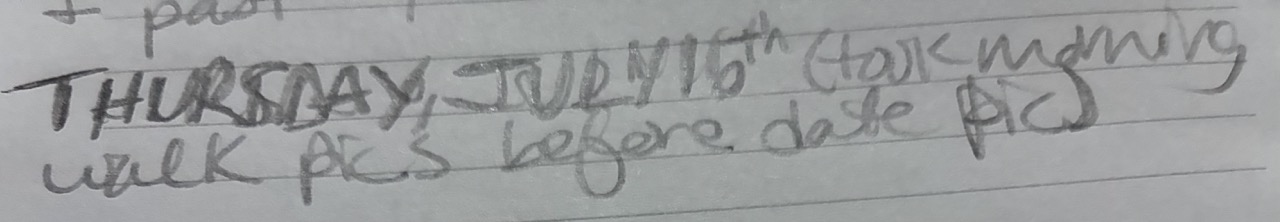 THURSDAY, JULY 16th (took morning
walk pics before date pics